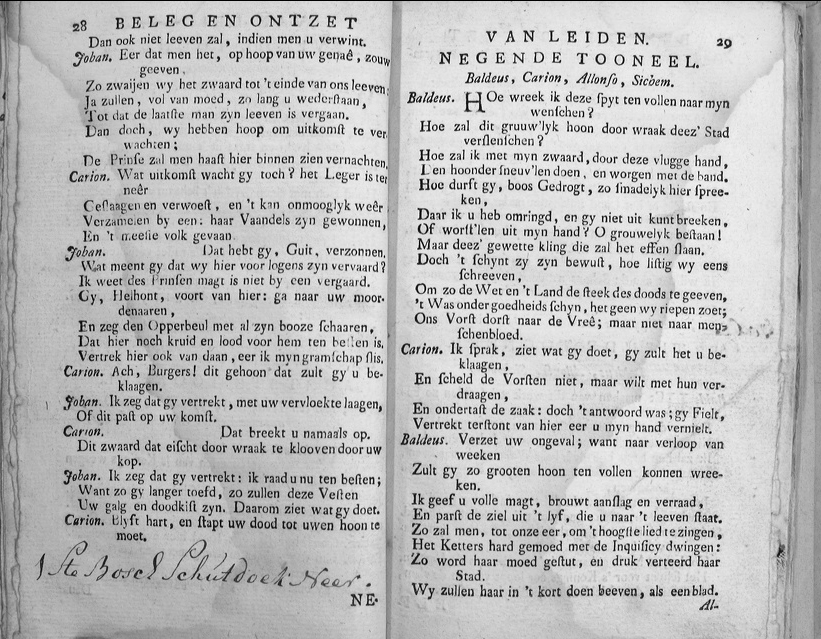 28 BELEG EN ONTZET
Dan ook niet leeven zal, indien men u verwint.
Johan. Eer dat men het, op hoop van uw genaê, zouw
geeven,
Zo zwaijen wy het zwaard tot 't einde van ons leeven;
Ja zullen, vol van moed, zo lang u wederſtaan,
Tot dat de laatſte man zyn leeven is vergaan.
Dan doch, wy hebben hoop om uitkomſt te ver
wachten;
De Prinſe zal men haaſt hier binnen zien vernachten.
Carion. Wat uitkomſt wacht gy toch? het Leger is ter
neêr
Geſlaagen en verwoeſt, en 't kan onmooglyk weêr
Verzamelen by een: haar Vaandels zyn gewonnen,
En 't meeſte volk gevaan
Johan. Dat hebt gy, Guit, verzonnen.
Wat meent gy dat wy hier voor logens zyn vervaard?
Ik weet des Prinſen magt is niet by een vergaard.
Gy, Helhont, voort van hier: ga naar uw moor-
denaaren,
En zeg den Opperbeul met al zyn booze ſchaaren,
Dat hier noch kruid en lood voor hem ten beſten is.
Vertrek hier ook van daan, eer ik myn gramſchap ſlis.
Carion. Ach, Burgers! dit gehoon dat zult gy u be-
klaagen.
Johan. Ik zeg dat gy vertrekt, met uw vervloekte laagen,
Of dit paſt op uw komſt.
Carion. Dat breekt u namaals op.
Dit zwaard dat eiſcht door wraak te klooven door uw
kop.
Johan. Ik zeg dat gy vertrekt: ik raad u nu ten beſten;
Want zo gy langer toefd, zo zullen deze Veſten
Uw galg en doodkiſt zyn. Daarom ziet wat gy doet.
Carion. Blyft hart, en ſtapt uw dood tot uwen hoon te
moet.
Ste Bosch Schutdoek Neer.
NE-
VAN LEIDEN. 29
NEGENDE TOONEEL.
Baldeus, Carion, Allonſo, Sichem.
Baldeus. HOe wreek ik deze ſpyt ten vollen naar myn
wenſchen?
Hoe zal dit gruuw'lyk hoon door wraak deez' Stad
verſlenſchen?
Hoe zal ik met myn zwaard, door deze vlugge hand,
Een hoonder ſneuv'len doen, en worgen met de hand.
Hoe durft gy, boos Gedrogt, zo ſmadelyk hier ſpree-
ken,
Daar ik u heb omringd, en gy niet uit kunt breeken,
Of worſt'len uit myn hand? O grouwelyk beſtaan!
Maar deez' gewette kling die zal het effen ſlaan.
Doch 't ſchynt zy zyn bewuſt, hoe liſtig wy eens
ſchreeven,
Om zo de Wet en 't Land de ſteek des doods te geeven,
't Was onder goedheids ſchyn, het geen wy riepen zoet;
Ons Vorſt dorſt naar de Vreê; maar niet naar men-
ſchenbloed.
Carion. Ik ſprak, ziet wat gy doet, gy zult het u be-
klaagen,
En ſcheld de Vorſten niet, maar wilt met hun ver-
draagen,
En ondertaſt de zaak: doch 't antwoord was; gy Fielt,
Vertrekt terſtont van hier eer u myn hand vernielt.
Baldeus. Verzet uw ongeval; want naar verloop van
weeken
Zult gy zo grooten hoon ten vollen konnen wree-
ken.
Ik geef u volle magt, brouwt aanſlag en verraad,
En parſt de ziel uit 't lyf, die u naar 't leeven ſtaat.
Zo zal men, tot onze eer, om 't hoogſte lied te zingen,
Het Ketters hard gemoed met de Inquiſicy dwingen:
Zo word haar moed geſtut, en druk verteerd haar
Stad.
Wy zullen haar in 't kort doen beeven, als een blad.
Al-